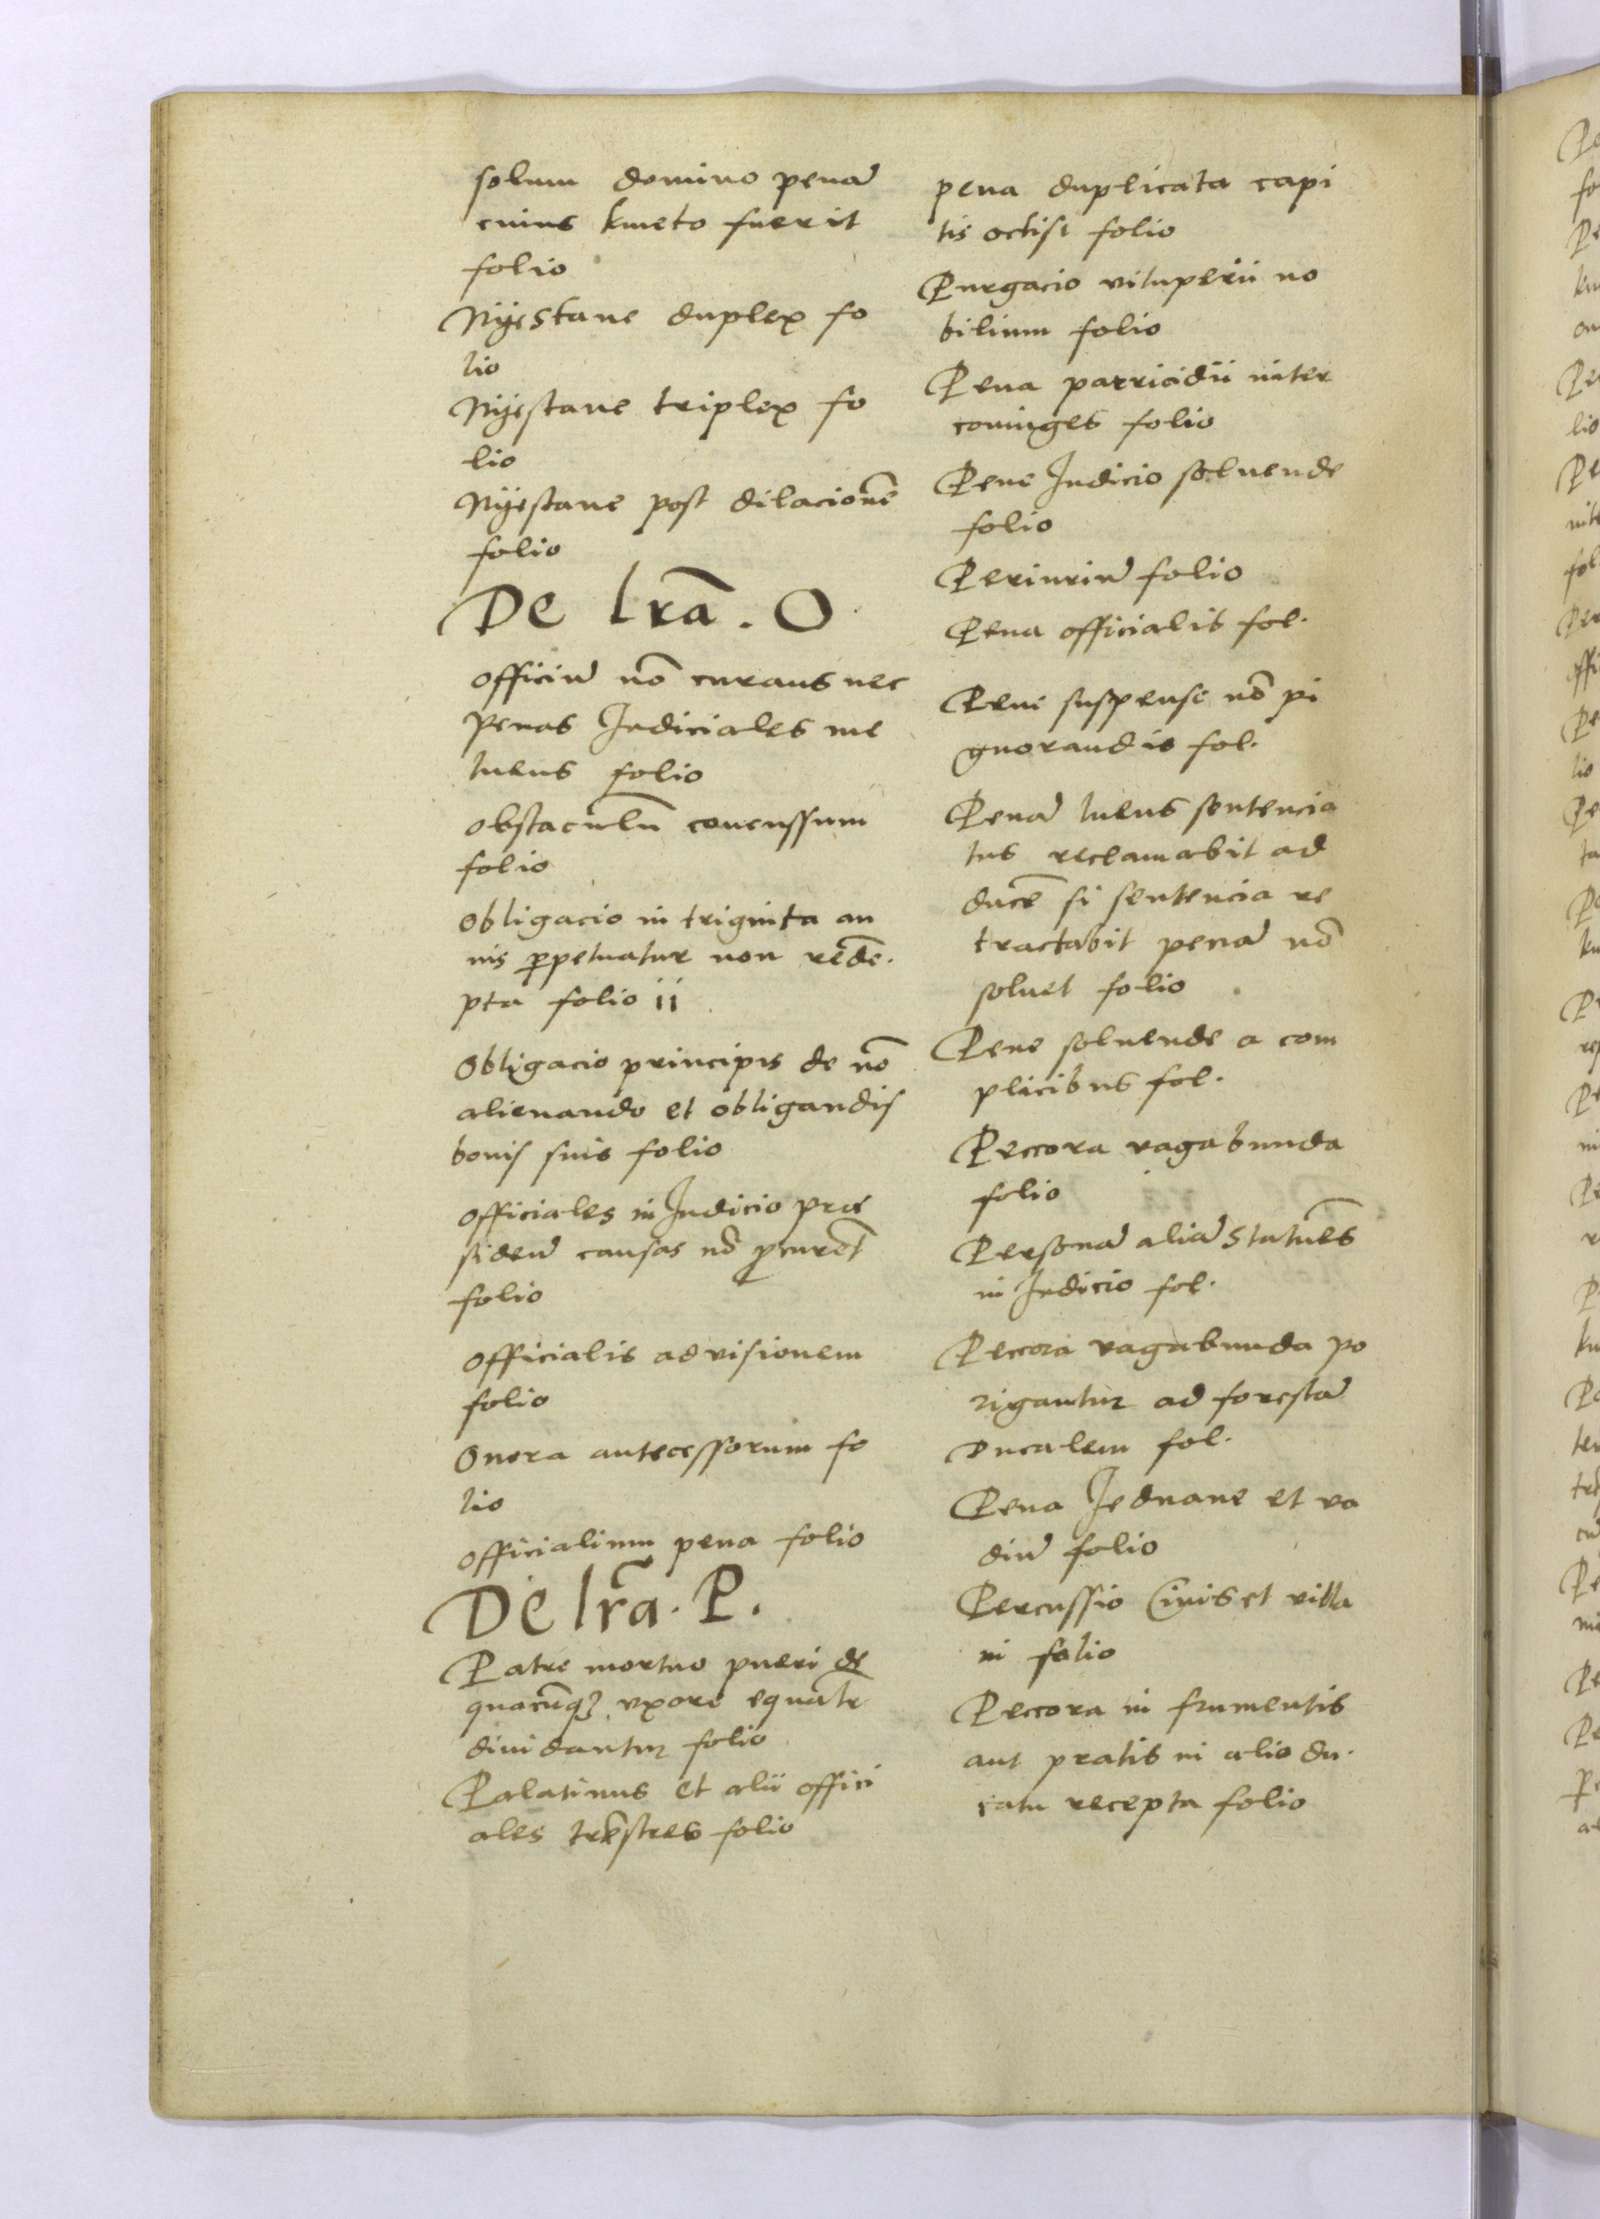 solum domino penã
cuius kmeto fuerit
folio
Nyestane duplex fo
lio
Nyestane triplex fo
lio
Nyestane post dilacionẽ
folio
De lrã . O
officiũ nõ curans nec
penas Judiciales me
tuens folio
obstaculũ concussum
folio
obligacio in triginta an
nis ꝑpetuatur non redẽ
pta folio ii
obligacio principis de nõ
alienando et obligandis
bonis suis folio
officiales in Judicio prae
sidenũ causas nõ ꝓcurẽt
folio
officialis ad visionem
folio
onera antecessorum fo
lio
officialium pena folio
De lrã . P .
Patre mortuo pueri de
quacũqꝫ uxore equalr
dividantur folio
Palatinus et alii offici
ales trẽstres folio
pena duplicata capi
tis octisi folio
Purgacio vituperii no
bilium folio
Pena parricidii inter
coniuges folio
Pene Judicio soluende
folio
Periuriũ folio
Pena officialis fol.
Pene suspense nõ pi
gnorandis fol.
Penã luens sentencia
tus reclamabit ad
ducẽ si sentencia re
tractabit penã nõ
soluet folio
Pene soluende a com
plicibus fol.
Peccora vagabunda
folio
Personã aliã statuẽs
in Judicio fol.
Peccora vagabunda po
rigantur ad forestã
Ducalem fol.
Pena Jednane et va
diũ folio
Percussio Civis et villa
ni folio
Peccora in frumentis
aut pratis in alio du
catu recepta folio